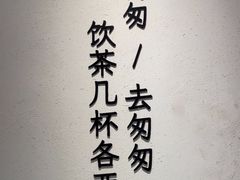 匆/去匆匆
饮茶几杯各西